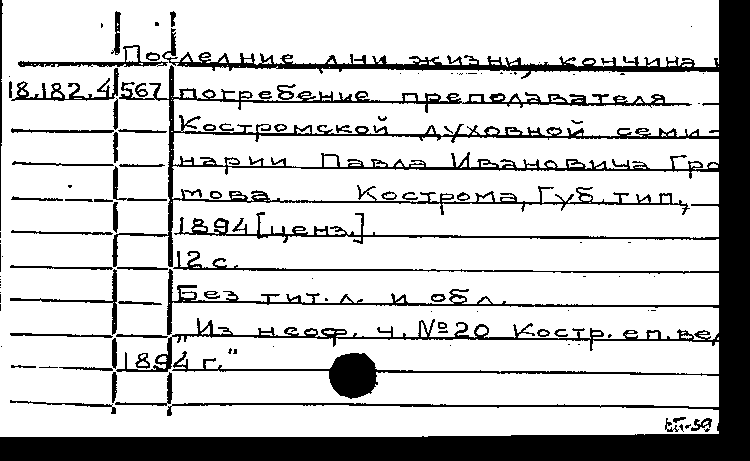 Последние дни жизни, кончина
18.182.4.567 погребение преподавателя
Костромской духовной семи-
нарии Павла Ивановича Гро
това. Кострома, Губ. тип.,
1894 [ценз.].
12 с.
Без тит. л. и обл.
„Из неоф. ч. №20 Костр. еп. вед
1894 г."